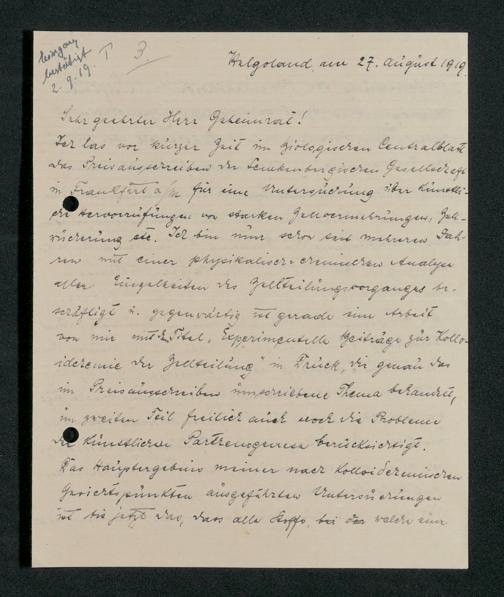 Eingang
bestätigt
2.9.19. T 3
Helgoland, am 27. August 1919.
Sehr geehrter Herr Geheimrat!
Ich las vor kurzer Zeit im Biologischen Centralblatt
das Preisausschreiben der Senkenbergischen Gesellschaft
in Frankfurt a/M für eine Untersuchung über künstli-
che Hervorrufungen von starken Zellvermehrungen, Zell-
wucherung etc. Ich bin nun schon seit mehreren Jah-
ren mit einer physikalisch-chemischen Analyse
aller Einzelheiten des Zellteilungsvorganges be-
schäftigt u. gegenwärtig ist gerade eine Arbeit
von mir mit d. Titel „Experimentelle Beiträge zur Kollo-
idchemie der Zellteilung" in Druck, die genau das
im Preisausschreiben umschriebene Thema behandelt,
im zweiten Teil freilich auch noch die Probleme
der künstlichen Parthenogenese berücksichtigt.
Das Hauptergebnis meiner nach kolloidchemischen
Gesichtspunkten ausgeführten Untersuchungen
ist bis jetzt das, dass alle Stoffe, bei welche eine